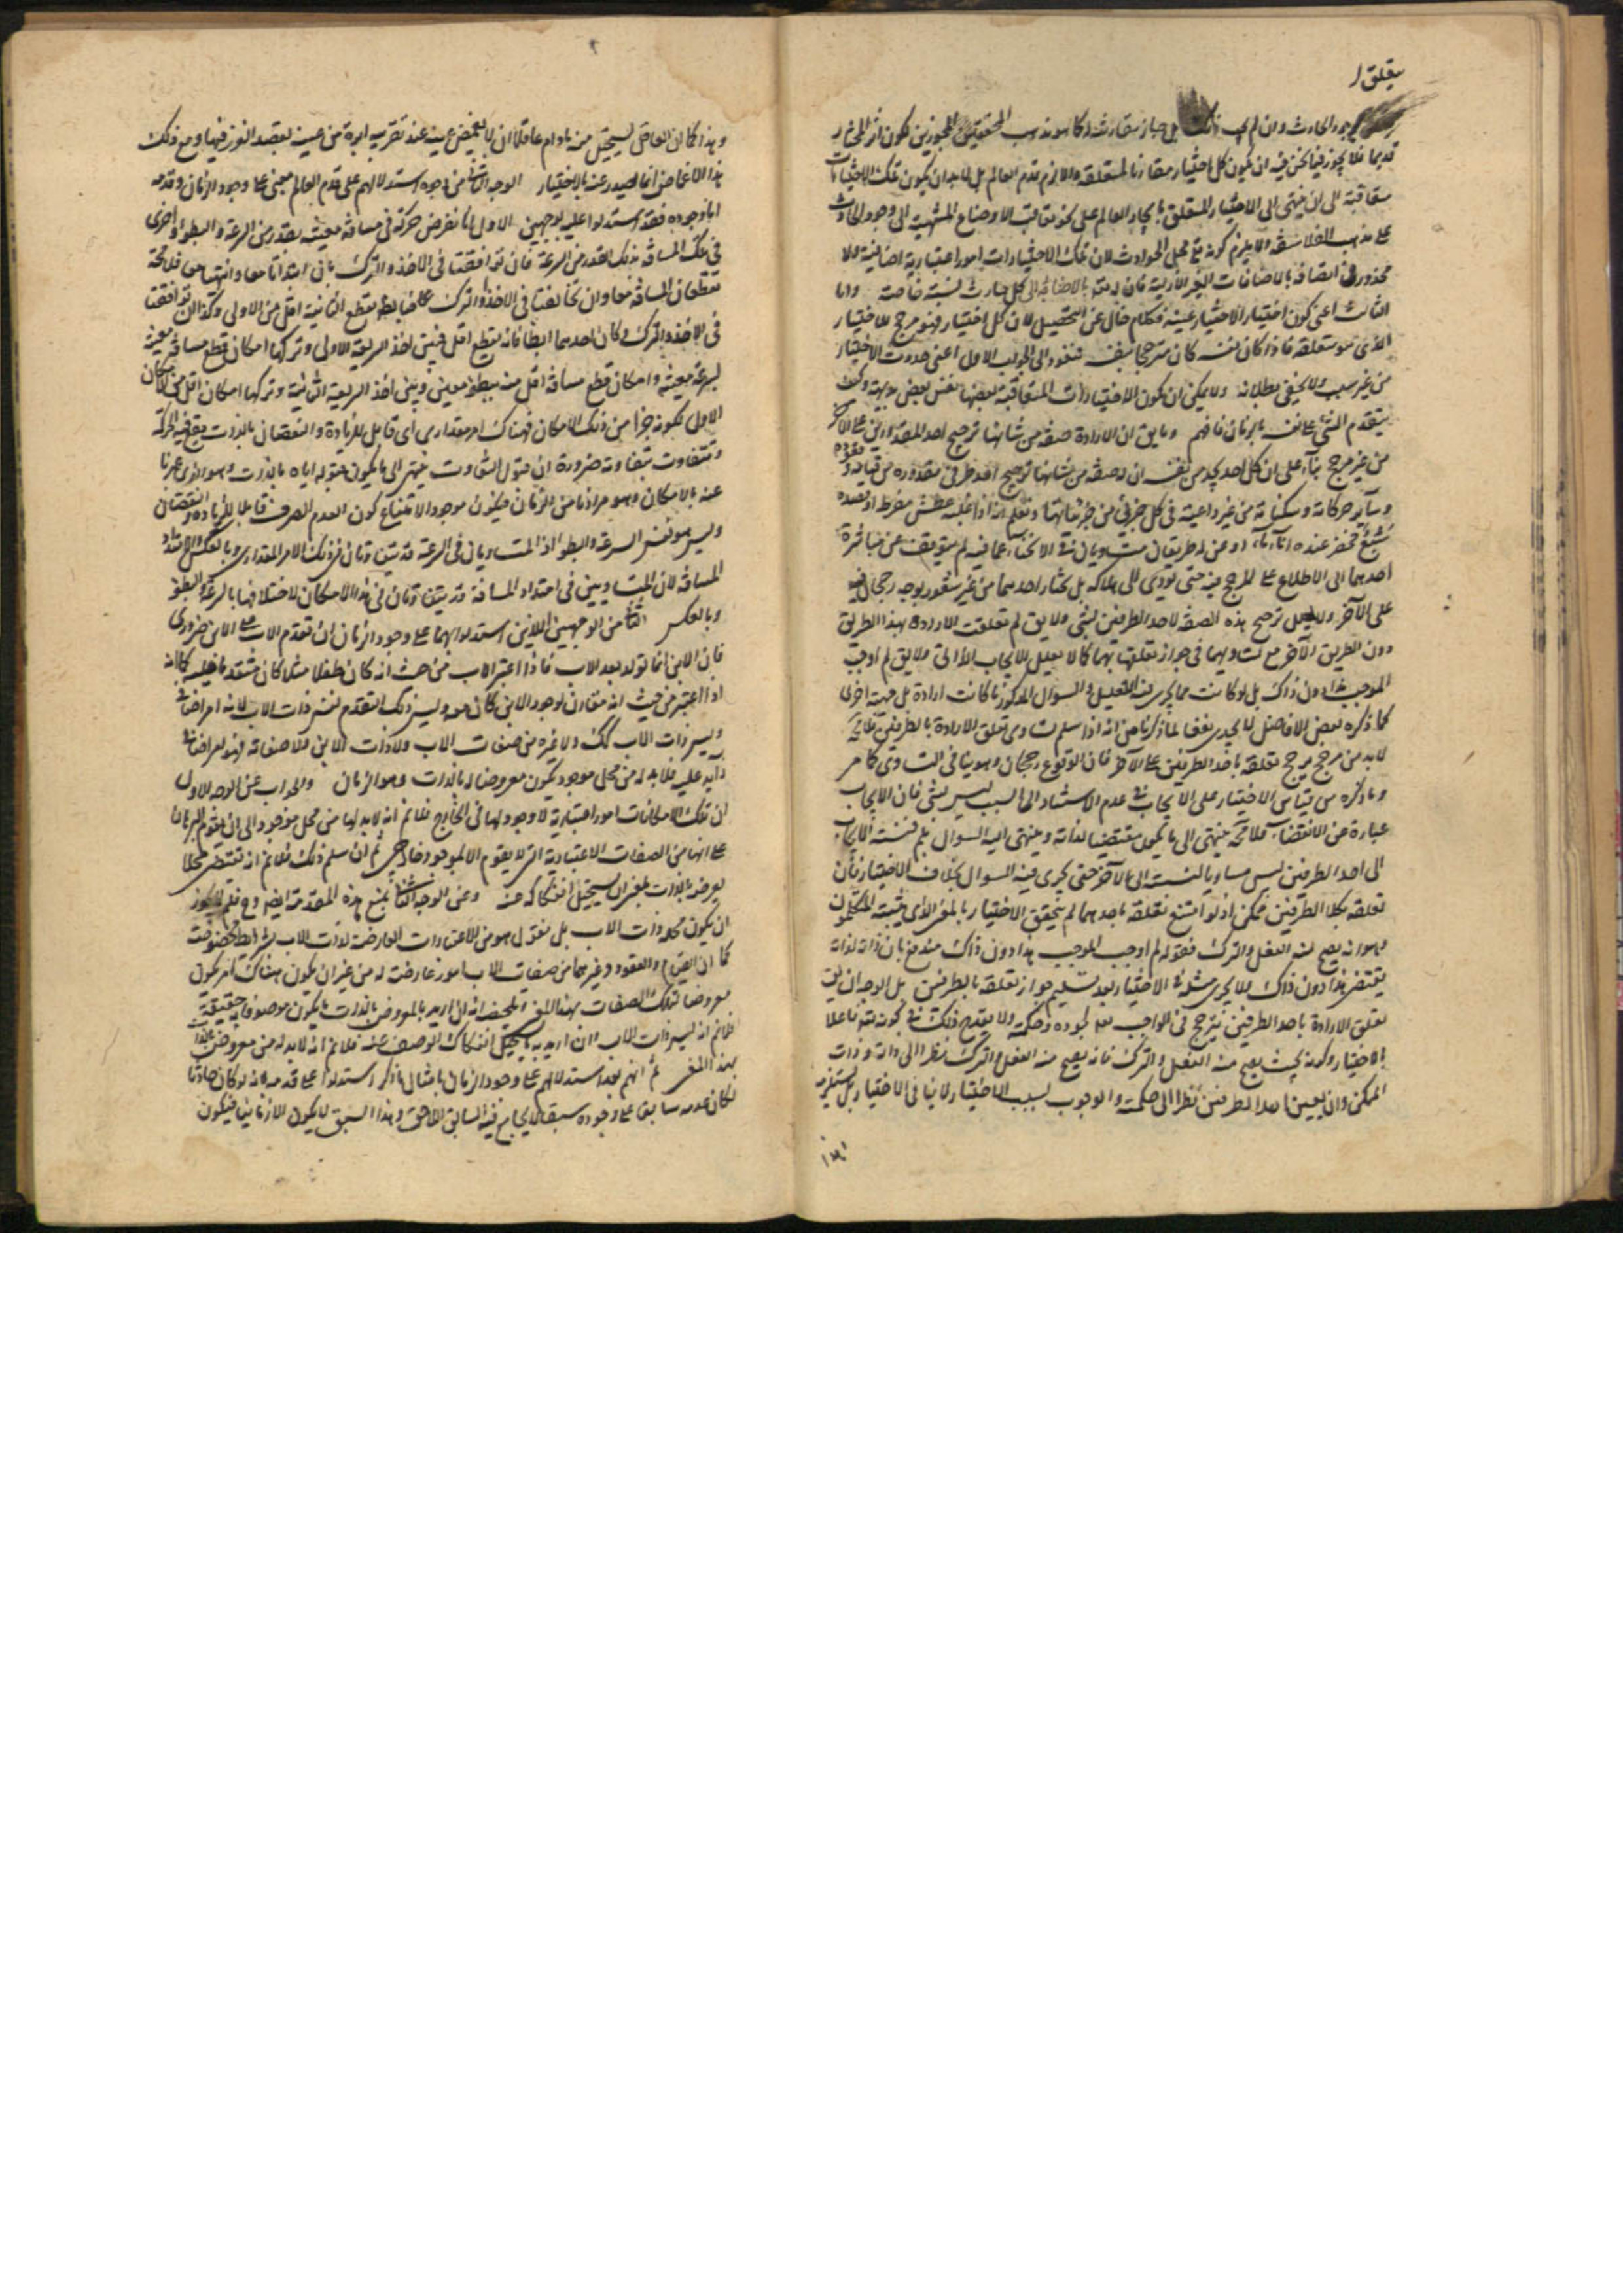 يتعلق ا
بوجود الحادث وان لم يجب ذلك بل جاز مقارنته له كما هو مذهب المحققين المجوزين لكون اثر المختار
قديما فلا يجوز فيما نحن فيه ان يكون كل اختيار مقارنا لمتعلقه والا لزم قدم العالم بل لا بد ان يكون تلك الاختيارات
متعاقبة الى ان ينتهى الى الاختيار المتعلق بايجاد العالم على نحو تعاقب الاوضاع المنتهية الى وجود الحادث
على مذهب الفلاسفة ولا يلزم كونه تع محل الحوادث لان تلك الاختيارات امور اعتبارية اضافية ولا
محذور فى اتصافه بالاضافات الغير الازلية فان له تع بالاضافة الى كل حادث نسبة خاصة واما
الثالث اعنى كون اختيار الاختيار عينه فكلام خال عن التحصيل لان كل اختيار فهو مرجح للاختيار
الذى هو متعلقه فاذا كان نفسه كان مرجحا بنفسه فنعود الى الجواب الاول اعنى حدوث الاختيار
من غير سبب ولا يخفى بطلانه ولا يمكن ان يكون الاختيارات المتعاقبة بعضها نفس بعض بديهة وكيف
يتقدم الشئ على نفسه بالزمان فافهم وما يق ان الارادة صفة من شانها ترجيح احد المقدورين على الاخر
من غير مرجح بناء على ان كل احد يجد من نفسه ان له صفة من شانها ترجيح احد طرفى مقدوره من قيامه وقعوده
وسائر حركاته وسكناته من غير داعية فى كل جزئى من جزئياتها ونعلم انه اذا غلبه عطش مفرط او قصده
سبع فحضر عنده اناءان او عن له طريقان متساويان فى الانحاء عما فيه لم يتوقف عن مباشرة
احدهما الى الاطلاع على المرجح فيه حتى يودى الى هلاكه بل يختار احدهما من غير شعور بوجه رجحان فيه
على الآخر ولا يعلل ترجيح هذه الصفة لاحد الطرفين بشئ ولا يق لم تعلقت الارادة بهذا الطريق
دون الطريق الآخر مع تساويهما فى جواز تعلقها بهما كما لا يعلل الايجاب الذاتى ولا يق لم اوجب
الموجب هذا دون ذاك بل لو كانت مما يجرى فيه التعليل والسوال المذكور ما كانت ارادة بل جهة اخرى
كما ذكره بعض الافاضل لا يجدى نفعا لما ذكرنا من انه اذا سلم تساوى تعلق الارادة بالطرفين فلا مح
لا بد من مرجح يرجح تعلقه باحد الطرفين على الآخر فان الوقوع رجحان وهو ينافى التساوى كما مر
وما ذكره من قياس الاختيار على الايجاب فى عدم الاستناد الى السبب ليس بشئ فان الايجاب
عبارة عن الاقتضاء فلا مح ينتهى الى ما يكون مقتضيا لذاته وينتهى اليه السوال بلم فنسبة الايجاب
الى احد الطرفين ليس مساويا لنسبته الى الآخر حتى يجرى فيه السوال بخلاف الاختيار فان
تعلقه بكلا الطرفين ممكن اذ لو امتنع تعلقه باحدهما لم يتحقق الاختيار بالمعنى الذى يثبته المتكلمون
وهو انه يصح منه الفعل والترك فقوله لم اوجب الموجب هذا دون ذاك مندفع بان ذاته لذاته
يقتضى هذا دون ذاك ولا يجرى مثله فى الاختيار بعد تسليم جواز تعلقه بالطرفين بل الوجه ان يق
تعلق الارادة باحد الطرفين يترجح فى الواجب تع لجوده وحكمته ولا يقدح ذلك فى كونه تع فاعلا
بالاختيار وكونه بحيث يصح منه الفعل والترك فانه يصح منه الفعل والترك نظرا الى ذاته وذات
الممكن وان تعين احد الطرفين نظرا الى حكمته والوجوب بسبب الاختيار لا ينافى الاختيار بل يستلزمه
وهذا كما ان العاقل يستحيل منه ما دام عاقلا ان لا يغمض عينه عند تقريب ابرة من عينه بقصد الغرز فيها ومع ذلك
هذا الاغماض انما يصدر عنه بالاختيار الوجه الثانى من وجوه استدلالهم على قدم العالم مبنى على وجود الزمان وقدمه
اما وجوده فقد استدلوا عليه بوجهين الاول انا نفرض حركة فى مسافة معينة بقدر من السرعة والبطؤ واخرى
فى تلك المسافة بذلك القدر من السرعة فان توافقتا فى الاخذ والترك بان ابتداتا معا وانتهتا معا فلا محة
تقطعان المسافة معا وان تخالفتا فى الاخذ والترك على ما بطؤ تقطع الثانية اقل من الاولى وكذا ان توافقتا
فى الاخذ والترك وكان احدهما ابطا فانه يقطع اقل فبين اخذ السريعة الاولى وتركها امكان قطع مسافة معينة
بسرعة معينة وامكان قطع مسافة اقل منه ببطؤ معين وبين اخذ السريعة الثانية وتركها امكان اقل من الامكان
الاول بكونه جزأ من ذلك الامكان فهناك امر مقدارى اى قابل للزيادة والنقصان بالذات يقع فيه الحركة
وتتفاوت بتفاوته ضرورة ان قبول التفاوت ينتهى الى ما يكون قبوله اياه بالذات وهو الذى عبرنا
عنه بالامكان وهو مرادنا من الزمان فيكون موجودا لامتناع كون العدم الصرف قابلا للزيادة والنقصان
وليس هو نفس السرعة والبطؤ اذ المتساويان فى السرعة قد يتفاوتان فى ذلك الامر المقدارى وبالعكس ولا امتداد
المسافة لان المتساويين فى امتداد المسافة قد يتفاوتان فى هذا الامكان لاختلافهما بالسرعة والبطؤ
وبالعكس الثانى من الوجهين اللذين استدلوا بهما على وجود الزمان ان تقدم الاب على الابن ضرورى
فان الابن انما تولد بعد الاب فاذا اعتبر الاب من حيث انه كان طفلا مثلا كان متقدما عليه كما انه
اذا اعتبر من حيث انه مقارن لوجود الابن كان معه وليس ذلك التقدم نفس ذات الاب لانه امر اضافى
وليس ذات الاب كك ولا غيره من صفات الاب ولا ذات الابن ولا صفاته فهو امر اضافى
زايد عليه فلا بد له من محل موجود يكون معروضا له بالذات وهو الزمان والجواب عن الوجه الاول
ان تلك الامكانات امور اعتبارية لا وجود لها فى الخارج فلا نم انه لا بد لها من محل موجود الى ان يقوم البرهان
على انها من الصفات الاعتبارية التى لا يقوم الا بالموجود الخارجى ثم ان سلم ذلك فلا نم انه تقتضى محلا
يعرضه بالذات بمعنى ان يستحيل انفكاكه منه وعن الوجه الثانى بمنع هذه المقدمة ايضا وح فلم لا يجوز
ان يكون محله ذات الاب بل نقول هو من الاعتبارات العارضة لذات الاب بشرائط مخصوصة
كما ان القيام والقعود وغيرهما من صفات الاب امور عارضة له من غير ان يكون هناك امر يكون
معروضا لتلك الصفات بهذا المعنى والملخص انه ان اريد بالمعروض بالذات ما يكون موصوفا به حقيقة
فلا نم انه ليس ذات الاب وان اريد به ما يستحيل انفكاك الوصف عنه فلا نم انه لا بد له من معروض بالذات
بهذا المعنى ثم انهم بعد استدلالهم على وجود الزمان بامثال ما ذكر استدلوا على قدمه بانه لو كان حادثا
لكان عدمه سابق على وجوده سبقا لا يجامع فيه السابق اللاحق وهذا السبق لا يكون الا زمانيا فيكون